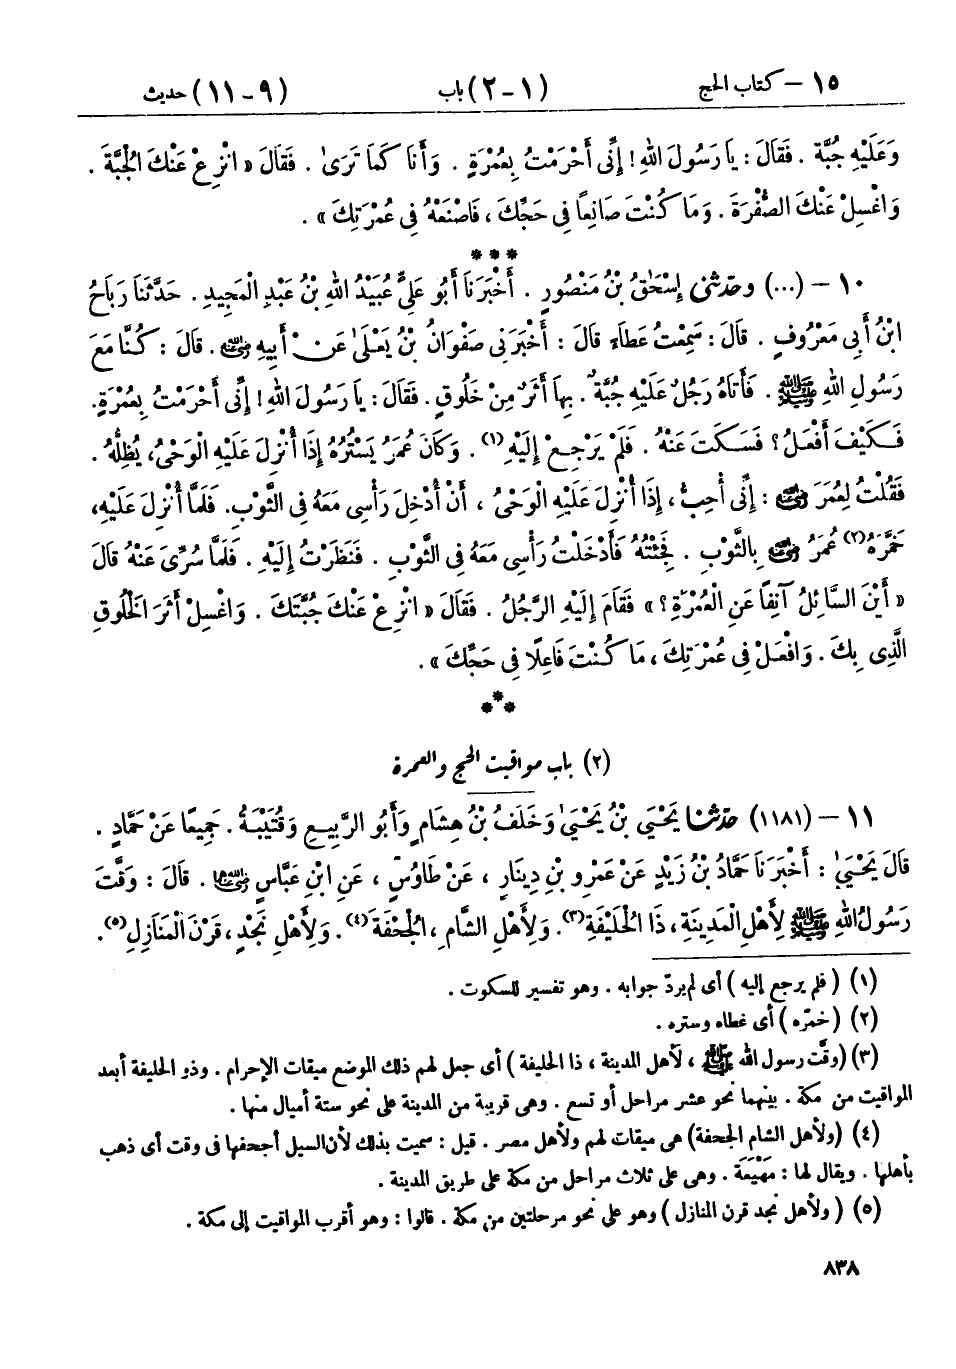 ١٥ – كتاب الحج (١ – ٢) باب (٩ – ١١) حديث
وَعَلَيْهِ جُبَّةٌ . فَقَالَ : يَا رَسُولَ اللهِ ! إِنِّى أَحْرَمْتُ بِعُمْرَةٍ . وَأَنَا كَمَا تَرَىٰ . فَقَالَ « انْزِعْ عَنْكَ الْجُبَّةَ .
وَاغْسِلْ عَنْكَ الصُّفْرَةَ . وَمَا كُنْتَ صَانِعاً فِى حَجِّكَ ، فَاصْنَعْهُ فِى عُمْرَتِكَ » .
* * *
١٠ – (...) وحَدَّثَنِى إِسْحَقُ بْنُ مَنْصُورٍ . أَخْبَرَنَا أَبُو عَلِىٍّ عُبَيْدُ اللهِ بْنُ عَبْدِ الْمَجِيدِ . حَدَّثَنَا رَبَاحُ
ابْنُ أَبِى مَعْرُوفٍ . قَالَ : سَمِعْتُ عَطَاءً قَالَ : أَخْبَرَنِى صَفْوَانُ بْنُ يَعْلَىٰ عَنْ أَبِيهِ رضي الله عنه . قَالَ : كُنَّا مَعَ
رَسُولِ اللهِ ﷺ . فَأَتَاهُ رَجُلٌ عَلَيْهِ جُبَّةٌ . بِهَا أَثَرٌ مِنْ خَلُوقٍ . فَقَالَ : يَا رَسُولَ اللهِ ! إِنِّى أَحْرَمْتُ بِعُمْرَةٍ .
فَكَيْفَ أَفْعَلُ ؟ فَسَكَتَ عَنْهُ . فَلَمْ يَرْجِعْ إِلَيْهِ (١) . وَكَانَ عُمَرُ يَسْتُرُهُ إِذَا أُنْزِلَ عَلَيْهِ الْوَحْىُ ، يُظِلُّهُ .
فَقُلْتُ لِعُمَرَ رضي الله عنه : إِنِّى أُحِبُّ ، إِذَا أُنْزِلَ عَلَيْهِ الْوَحْىُ ، أَنْ أُدْخِلَ رَأْسِى مَعَهُ فِى الثَّوْبِ . فَلَمَّا أُنْزِلَ عَلَيْهِ ،
خَمَّرَهُ (٢) عُمَرُ رضي الله عنه بِالثَّوْبِ . فَجِئْتُهُ فَأَدْخَلْتُ رَأْسِى مَعَهُ فِى الثَّوْبِ . فَنَظَرْتُ إِلَيْهِ . فَلَمَّا سُرِّىَ عَنْهُ قَالَ
« أَيْنَ السَّائِلُ آنِفاً عَنِ الْعُمْرَةِ ؟ » فَقَامَ إِلَيْهِ الرَّجُلُ . فَقَالَ « انْزِعْ عَنْكَ جُبَّتَكَ . وَاغْسِلْ أَثَرَ الْخَلُوقِ
الَّذِى بِكَ . وَافْعَلْ فِى عُمْرَتِكَ ، مَا كُنْتَ فَاعِلًا فِى حَجِّكَ » .
* * *
(٢) باب مواقيت الحج والعمرة
١١ – (١١٨١) حَدَّثَنَا يَحْيَىٰ بْنُ يَحْيَىٰ وَخَلَفُ بْنُ هِشَامٍ وَأَبُو الرَّبِيعِ وَقُتَيْبَةُ . جَمِيعًا عَنْ حَمَّادٍ .
قَالَ يَحْيَىٰ : أَخْبَرَنَا حَمَّادُ بْنُ زَيْدٍ عَنْ عَمْرِو بْنِ دِينَارٍ ، عَنْ طَاوُسٍ ، عَنِ ابْنِ عَبَّاسٍ رضي الله عنهما . قَالَ : وَقَّتَ
رَسُولُ اللهِ ﷺ لِأَهْلِ الْمَدِينَةِ ، ذَا الْحُلَيْفَةِ (٣) . وَلِأَهْلِ الشَّامِ ، الْجُحْفَةَ (٤) . وَلِأَهْلِ نَجْدٍ ، قَرْنَ الْمَنَازِلِ (٥) .
(١) ( فلم يرجع إليه ) أى لم يردّ جوابه . وهو تفسير للسكوت .
(٢) ( خمّره ) أى غطاه وستره .
(٣) ( وقَّت رسول الله ﷺ ، لأهل المدينة ، ذا الحليفة ) أى جعل لهم ذلك الموضع ميقات الإحرام . وذو الحليفة أبعد
المواقيت من مكة . بينهما نحو عشر مراحل أو تسع . وهى قريبة من المدينة على نحو ستة أميال منها .
(٤) ( ولأهل الشام الجحفة ) هى ميقات لهم ولأهل مصر . قيل : سميت بذلك لأن السيل أجحفها فى وقت أى ذهب
بأهلها . ويقال لها : مَهْيَعَة . وهى على ثلاث مراحل من مكة على طريق المدينة .
(٥) ( ولأهل نجد قرن المنازل ) وهو على نحو مرحلتين من مكة . قالوا : وهو أقرب المواقيت إلى مكة .
٨٣٨